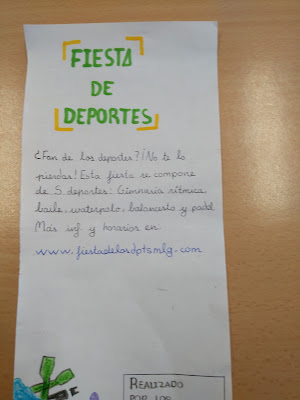 FIESTA
DE
DEPORTES
¿Fan de los deportes? ¡No te lo
pierdas! Esta fiesta se compone
de 5 deportes: Gimnasia rítmica,
baile, waterpolo, baloncesto y padel
Más inf. y horarios en
www.fiestadelosdptsmlg.com
REALIZADO
POR LOS